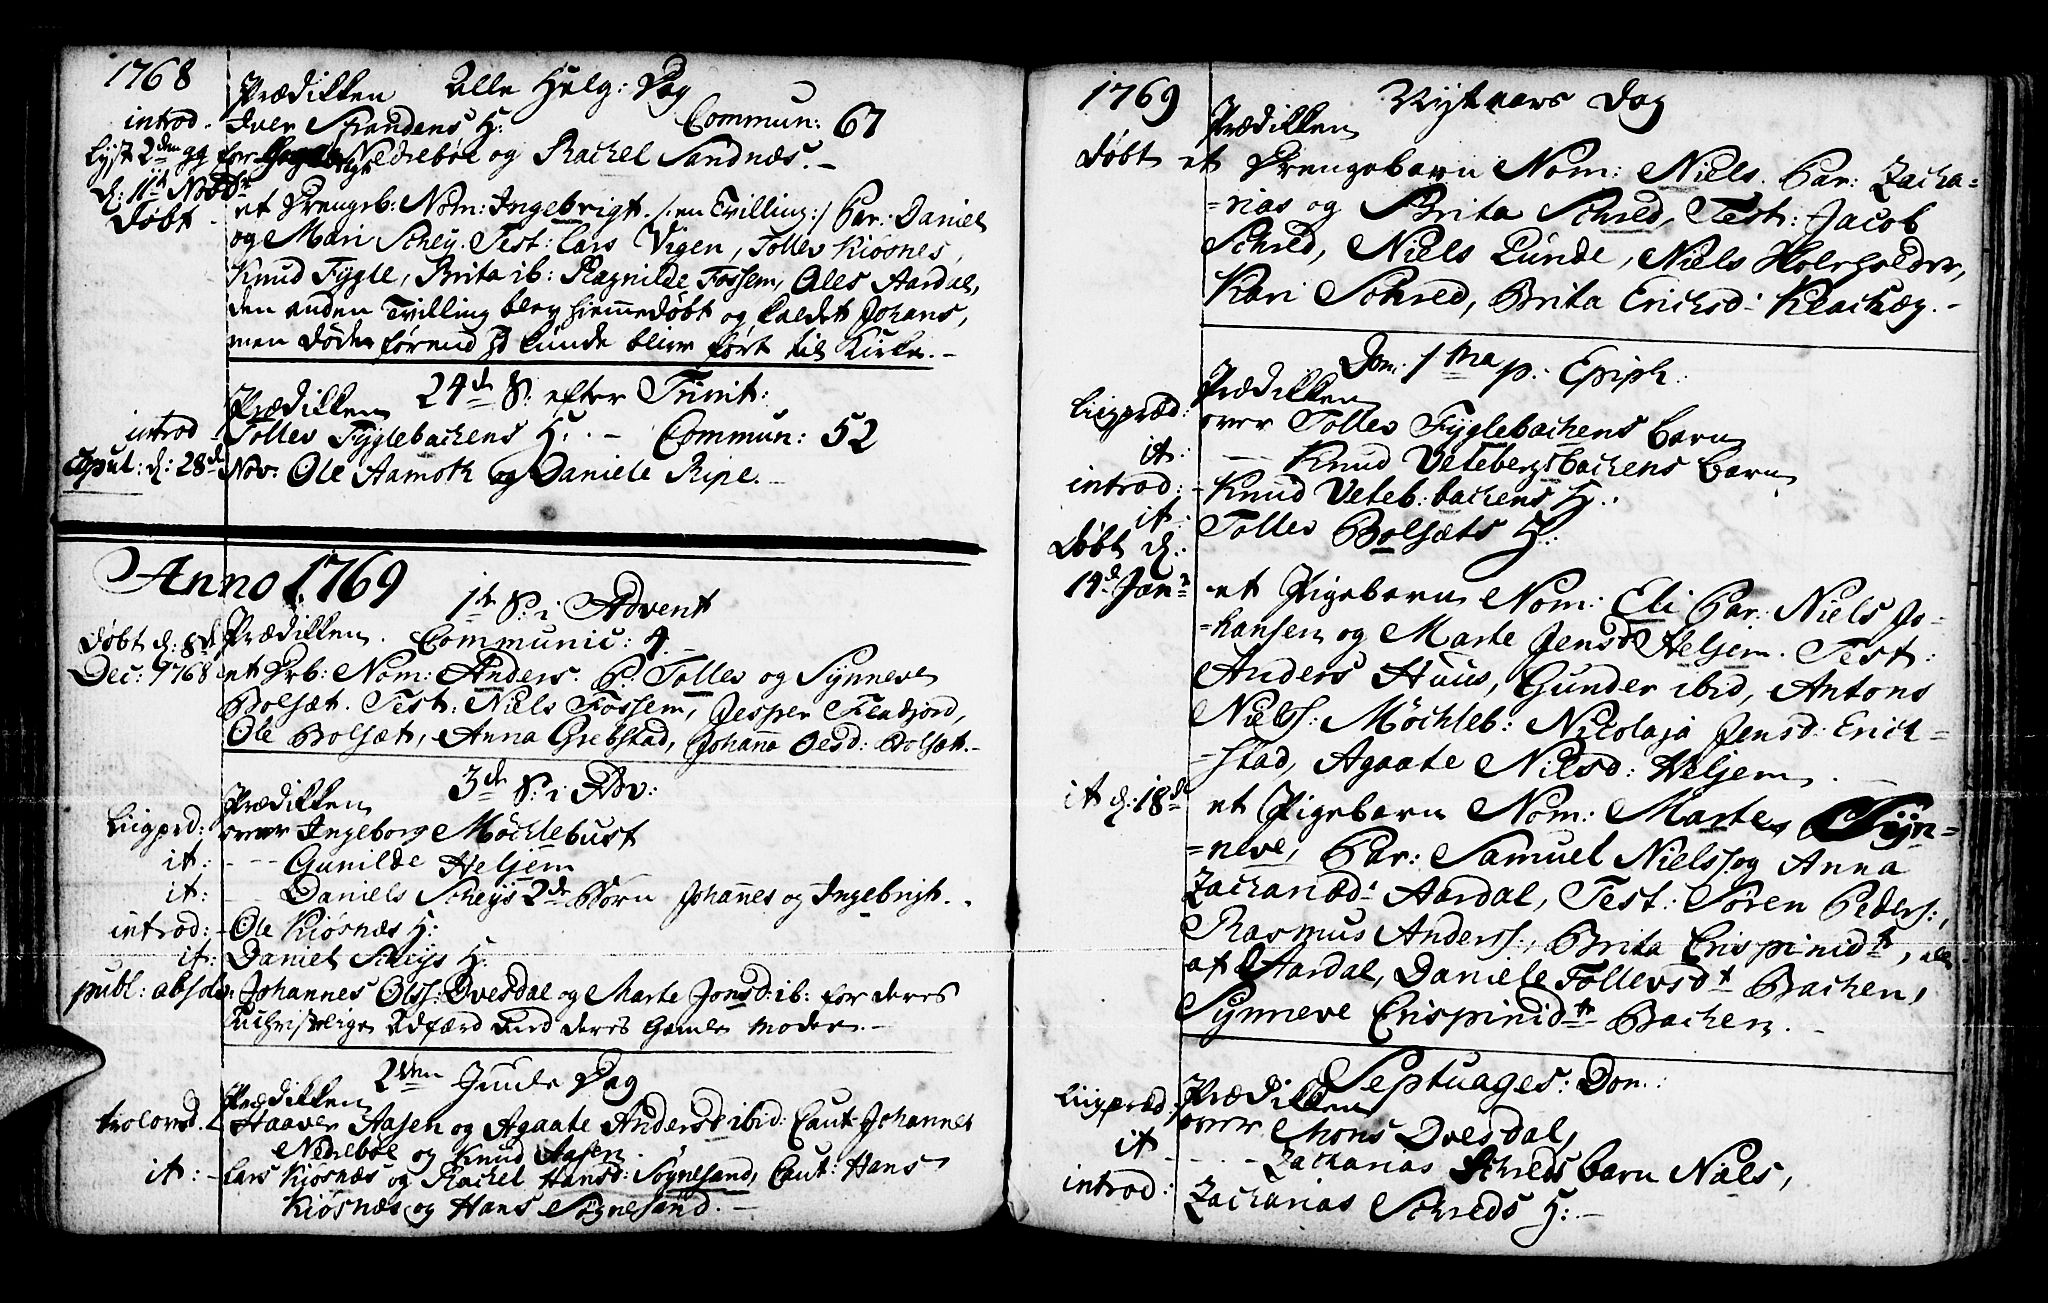 1768
Prædikken Alle Helg: Dag
introd. Iver Strandens H: Commun: 67
Lyst 2den gg for Nedrebøe og Rachel Sandnæs.
d: 11te Nov
Døbt et Drengeb: Nom: Ingebrigt /: en Tvilling :/ Par: Daniel
og Mari Schey. Test: Lars Vigen, Tollev Kiøsnes,
Knud Fygle, Brita ib: Ragnilde Fossem, Oles Aardal,
den anden Tvilling blev hiemmedøbt og kaldet Johans,
men døde førend d kunde blive ført til Kirke.
24de S: efter Trinit:
Prædikken
introd Tollev Fyglebachens H: Commun: 52
Copul: d: 28de Nov: Ole Aamoth og Daniele Ripe.
Anno 1769
1te S: i Advent
Prædikken. Communic: 4.
Døbt d: 8de
Dec: 1768 et Drb: Nom: Anders. P: Tollev og Synneve
Bolsæt. Test: Niels Fossem, Jesper Flatjord,
Ole Bolsæt, Anna Grebstad, Johanna Olsd: Bolsæt.
3de S: i Adv:
Prædikken
Liigprd: over Ingeborg Møchlebust
it: Gunilde Heljem
it: Daniels Scheys 2de Børn Johannes og Ingebrigt.
introd: Ole Kiøsnæs H:
it: Daniel Scheys H:
publ: absolv: Johannes Olss: Dvesdal og Marte Jonsd: ib: for deres
Uchristelige Adfærd imod deres Gamle Moder.
2den Juule Dag
Prædikken
troloved. Haaver Aasen og Agaate Andersd ibid: Caut: Johannes
Nedrebøe og Knud Aasen.
it: Lars Kiøsnæs og Rachel Hansd: Søgnesand, Caut: Hans
Kiøsnæs og Hans Søgnesand.
1769
Nyt aars Dag
Prædikken
Døbt et Drengebarn Nom: Niels. Par: Zacha=
=rias og Brita Schred, Test: Jacob
Schred, Niels Lunde, Niels Holeholder,
Kari Schred, Brita Erichsd: Klachæg.
Dom: 1ma p: Epiph:
Prædikken
Liigpræd: over Tollev Fyglebachens barn
it: Knud Vetebergsbachens barn
introd: Knud Veteb: bachens H:
it: Tollev Bolsæts H:
Døbt d:
14de Jan: et Pigebarn Nom: Eli Par: Niels Jo-
=hansen og Marte Jensd Heljem. Test:
Anders Huus, Gunder ibid, Antons
Nielss: Møchleb: Nicolaja Jensd: Erich=
=stad, Agaate Nilsd: Heljem.
it d: 18de et Pigebarn Nom: Marte, Syn=
=neve, Par: Samuel Nielss: og Anna
Zachariæd: Aardal, Test: Søren Peders:,
Rasmus Anderss:, Brita Crispinidtr, alle
af Aardal, Daniele Tollevsdt Bachen,
Synneve Crispinidtr Bachen.
Septuages: Dom:
Prædikken
Liigpræd: over Mons Dvesdal,
it Zacharias Schreds barn Niels,
introd: Zacharias Schreds H: